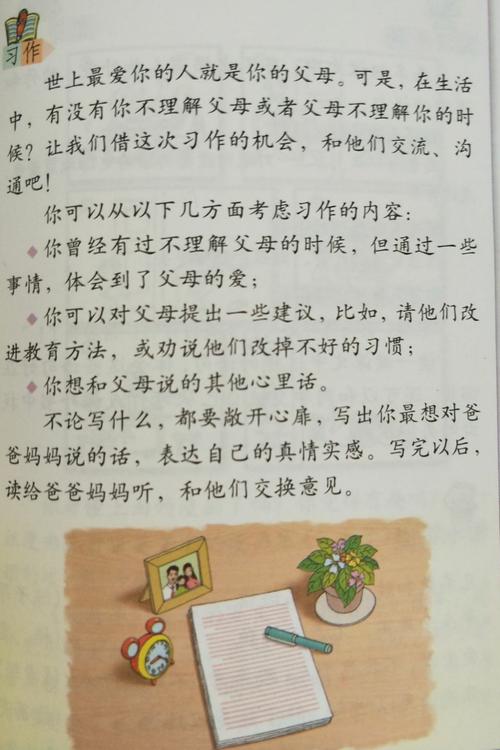 习作
世上最爱你的人就是你的父母。可是，在生活
中，有没有你不理解父母或者父母不理解你的时
候？让我们借这次习作的机会，和他们交流、沟
通吧！
你可以从以下几方面考虑习作的内容：
◆你曾经有过不理解父母的时候，但通过一些
事情，体会到了父母的爱；
◆你可以对父母提出一些建议，比如，请他们改
进教育方法，或劝说他们改掉不好的习惯；
◆你想和父母说的其他心里话。
不论写什么，都要敞开心扉，写出你最想对爸
爸妈妈说的话，表达自己的真情实感。写完以后，
读给爸爸妈妈听，和他们交换意见。